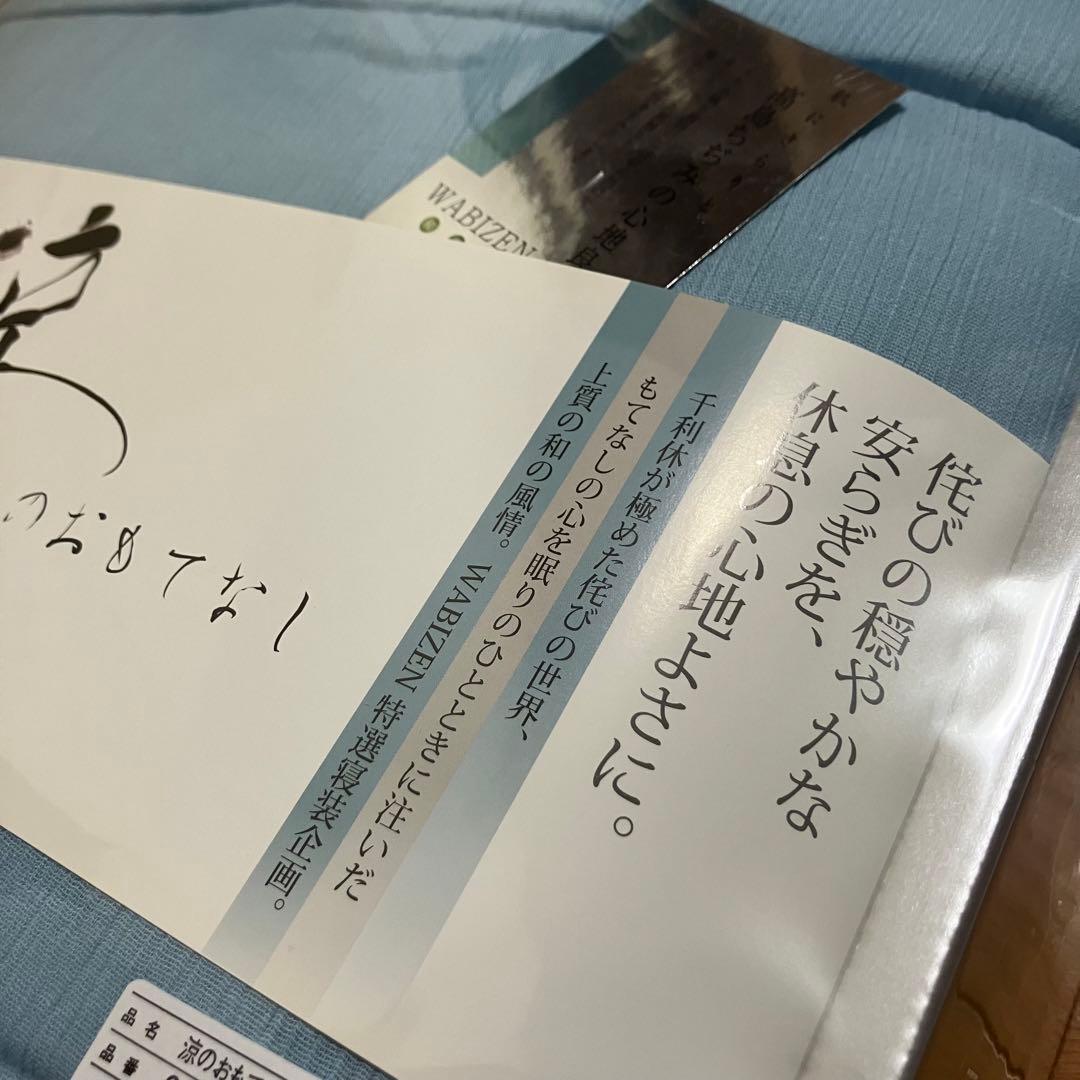 侘びの穏やかな
安らぎを、
休息の心地よさに。
千利休が極めた侘びの世界、
もてなしの心を眠りのひとときに注いだ
上質の和の風情。WABIZEN 特選寝装企画。
のおもてなし
高島ちぢみの心地良
WABIZEN
品名 涼のおも
品番